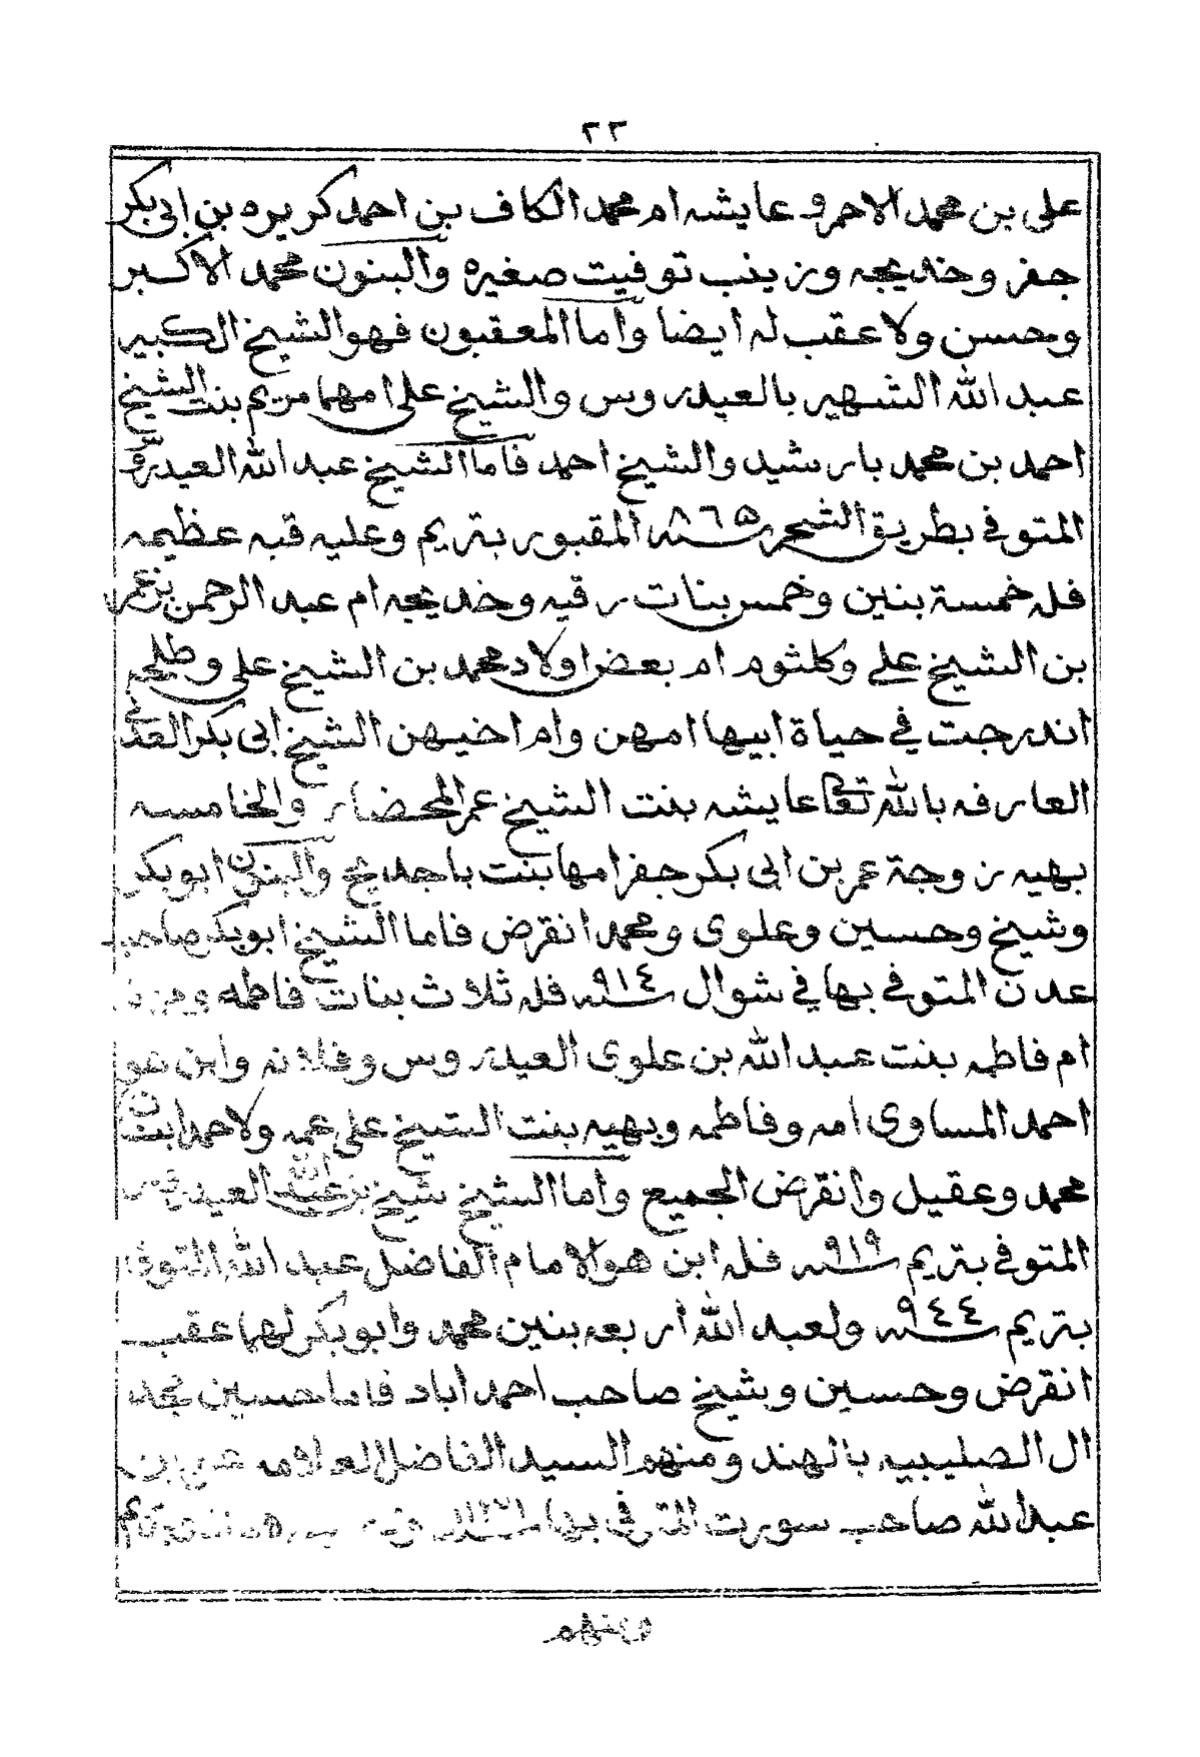 ٢٣
على بن محمد الاحمر وعايشه ام محمد الكاف بن احمد كريره بن ابى بكر
جفر وخديجه وزينب توفيت صغيره والبنون محمد الاكبر
وحسن ولا عقب له ايضا واما المعقبون فهو الشيخ الكبير
عبد الله الشهير بالعيدروس والشيخ على امهما مريم بنت الشيخ
احمد بن محمد بارشيد والشيخ احمد فاما الشيخ عبد الله العيدروس
المتوفي بطريق الشحر سنه ٨٦٥ المقبور بتريم وعليه قبه عظيمه
فله خمسة بنين وخمس بنات رقيه وخديجه ام عبد الرحمن بن عمر
بن الشيخ علي وكلثوم ام بعض اولاد محمد بن الشيخ على وطلحه
اندرجت في حياة ابيها امهن وام اخيهن الشيخ ابى بكر العدني
العارفه بالله تعا عايشه بنت الشيخ عمر المحضار والخامسه
بهيه زوجة عمر بن ابى بكر جفر امها بنت باجديع والبنون ابوبكر
وشيخ وحسين وعلوى ومحمد انقرض فاما الشيخ ابوبكر صاحب
عدن المتوفي بها في شوال سنه ٩١٤ فله ثلاث بنات فاطمه ومزنه
ام فاطمه بنت عبد الله بن علوى العيدروس وفلانه وابن هو
احمد المساوى امه وفاطمه وبهيه بنت الشيخ على عمه ولاحمد ابنان
محمد وعقيل وانقرض الجميع واما الشيخ شيخ بن عبد الله العيدروس
المتوفي بتريم سنه ٩١٩ فله ابن هو الامام الفاضل عبد الله المتوفى
بتريم سنه ٩٤٤ ولعبد الله اربعه بنين محمد وابوبكر لهما عقب
انقرض وحسين وشيخ صاحب احمد اباد فاما حسين فجد
ال الصليبيه بالهند ومنهم السيد الفاضل العلامه على بن
عبد الله صاحب سورت المتوفي بها
ومنهم